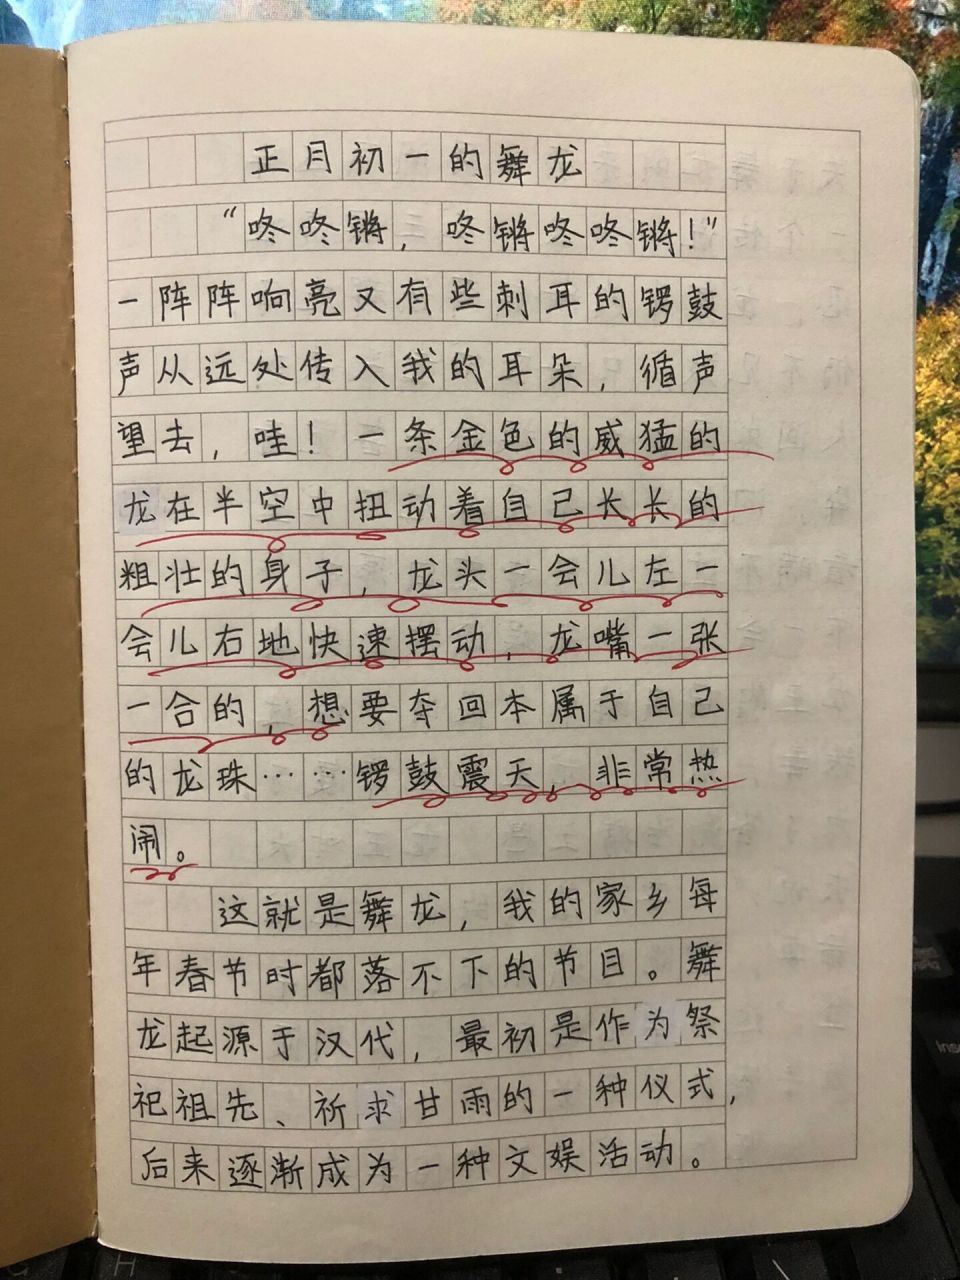 正月初一的舞龙
“咚咚锵，咚锵咚咚锵！”
一阵阵响亮又有些刺耳的锣鼓
声从远处传入我的耳朵，循声
望去，哇！一条金色的威猛的
龙在半空中扭动着自己长长的
粗壮的身子，龙头一会儿左一
会儿右地快速摆动，龙嘴一张
一合的，想要夺回本属于自己
的龙珠……锣鼓震天，非常热
闹。
这就是舞龙，我的家乡每
年春节时都落不下的节目。舞
龙起源于汉代，最初是作为祭
祀祖先、祈求甘雨的一种仪式，
后来逐渐成为一种文娱活动。